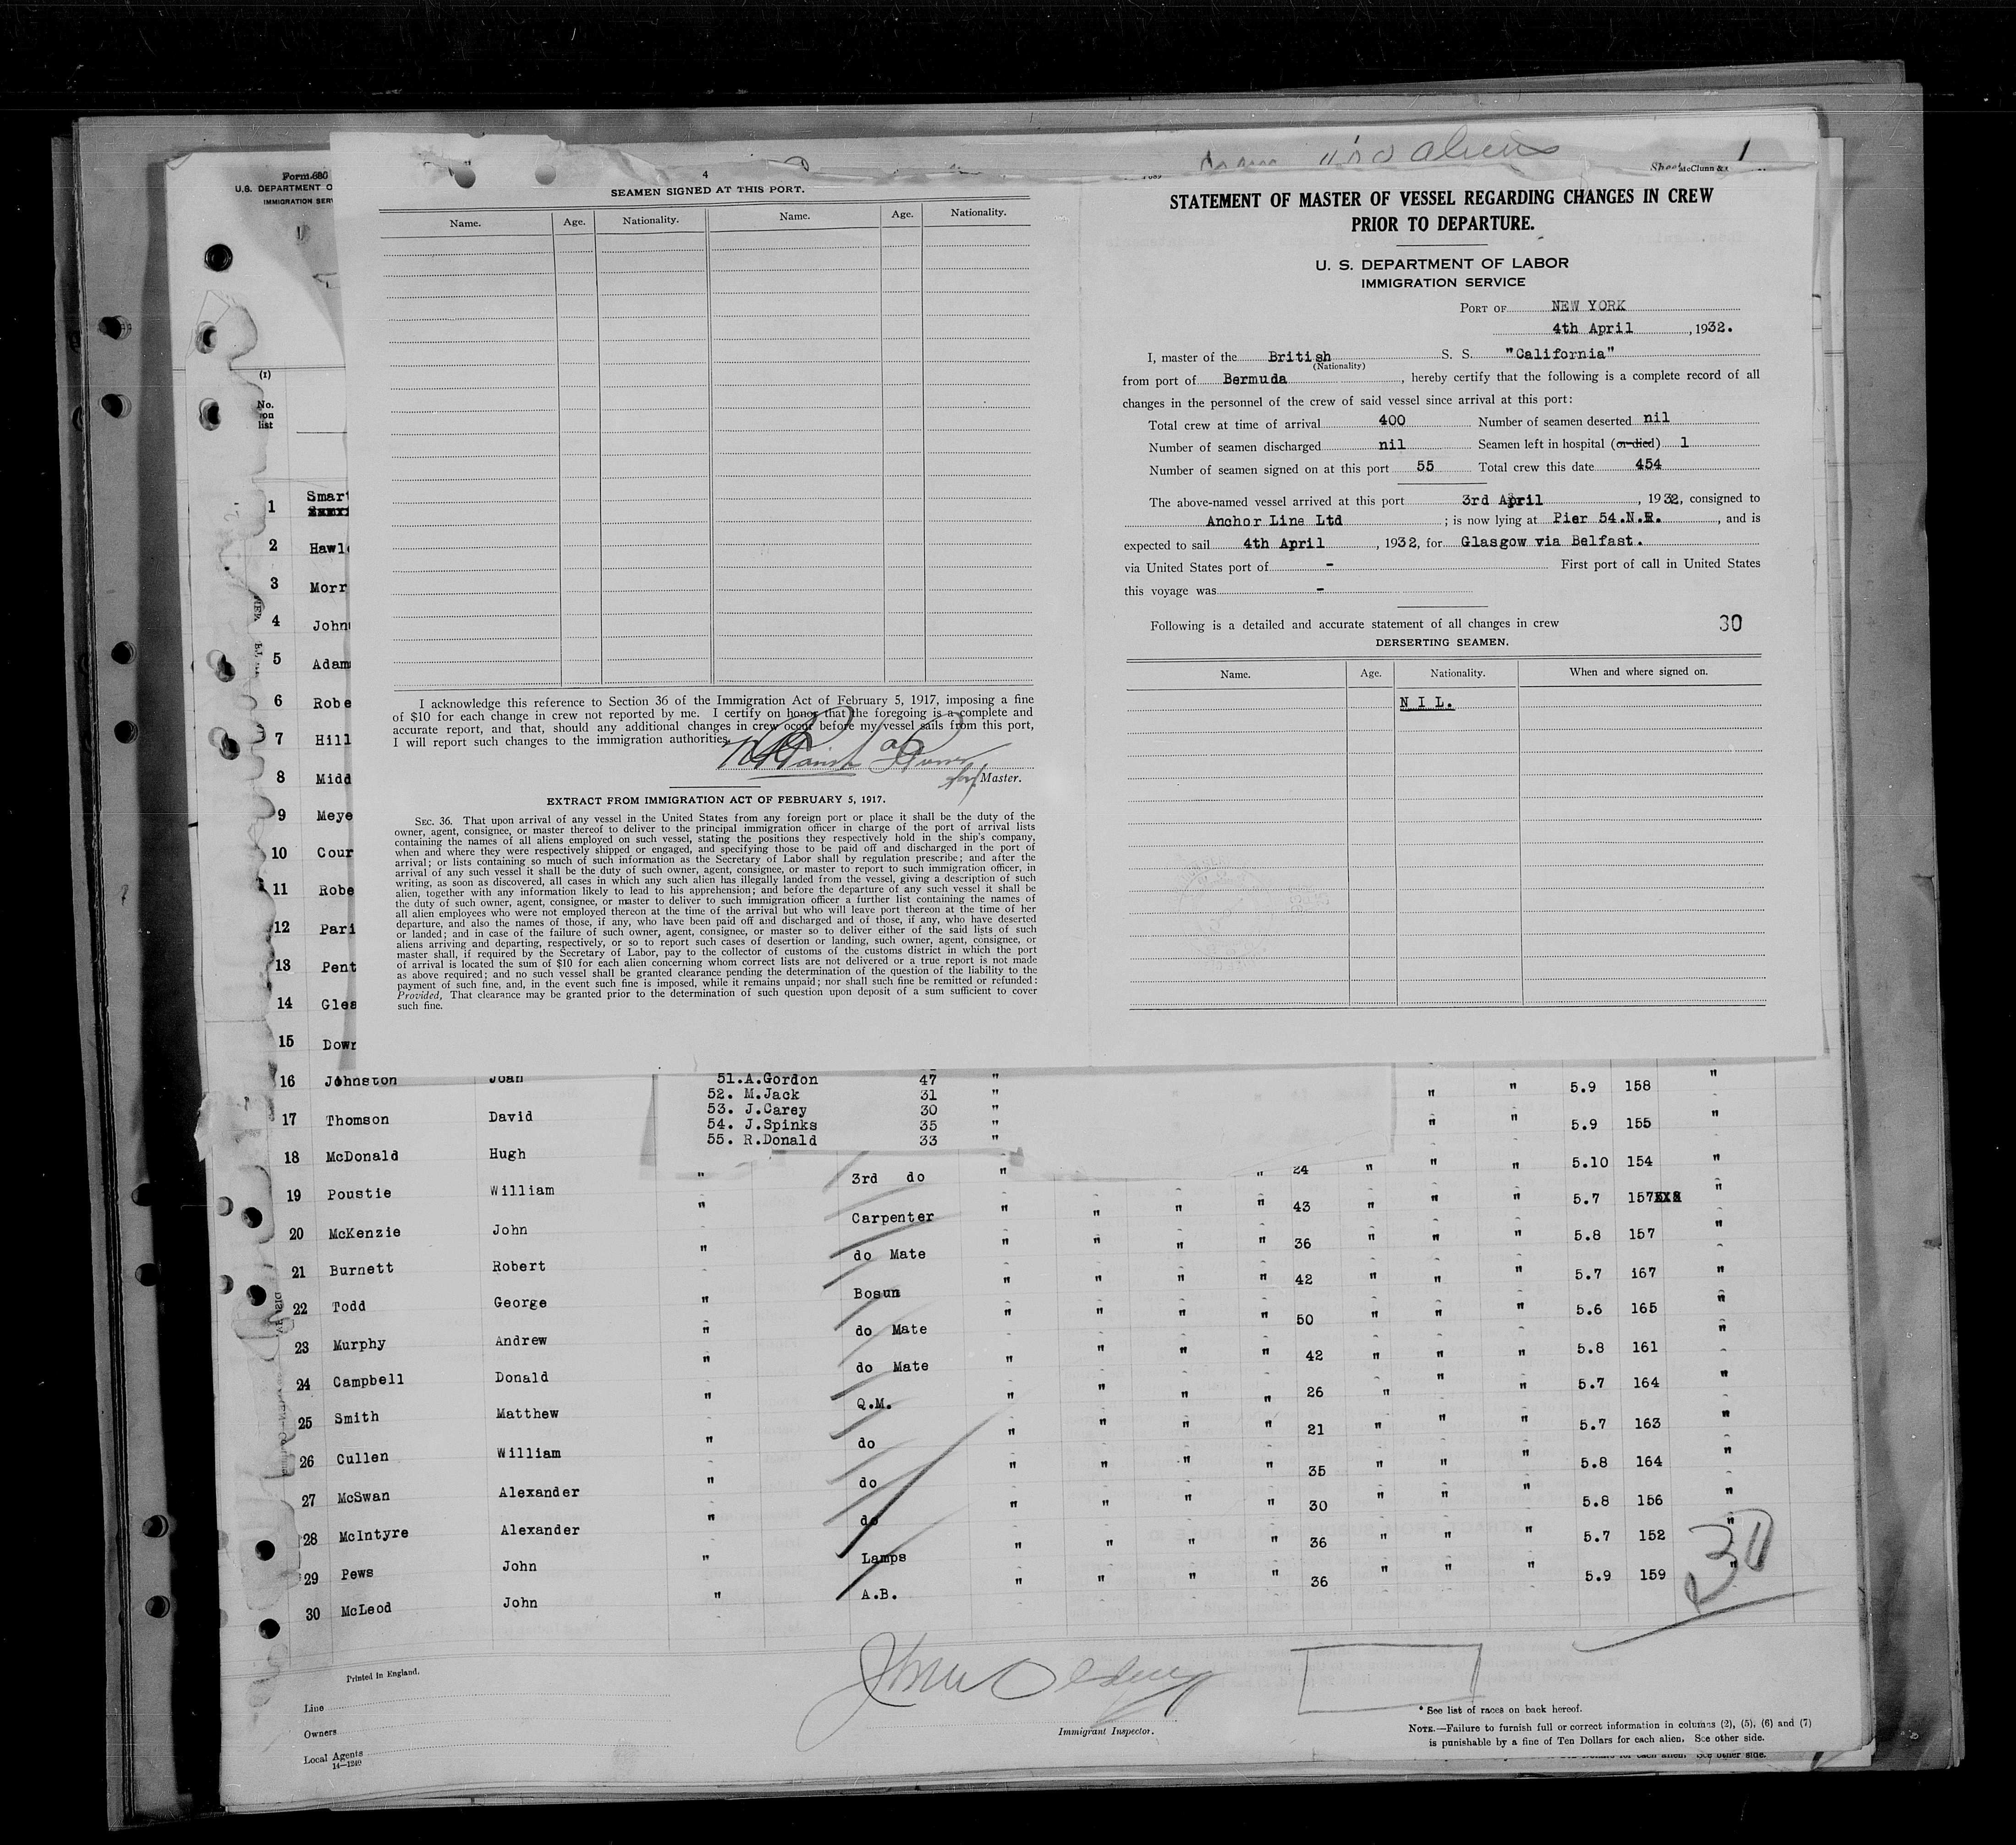 4
SEAMEN SIGNED AT THIS PORT.
Name. Age. Nationality. Name. Age. Nationality.
I acknowledge this reference to Section 36 of the Immigration Act of February 5, 1917, imposing a fine
of $10 for each change in crew not reported by me. I certify on honor that the foregoing is a complete and
accurate report, and that, should any additional changes in crew occur before my vessel sails from this port,
I will report such changes to the immigration authorities.
Master.
EXTRACT FROM IMMIGRATION ACT OF FEBRUARY 5, 1917.
SEC. 36. That upon arrival of any vessel in the United States from any foreign port or place it shall be the duty of the
owner, agent, consignee, or master thereof to deliver to the principal immigration officer in charge of the port of arrival lists
containing the names of all aliens employed on such vessel, stating the positions they respectively hold in the ship's company,
when and where they were respectively shipped or engaged, and specifying those to be paid off and discharged in the port of
arrival; or lists containing so much of such information as the Secretary of Labor shall by regulation prescribe; and after the
arrival of any such vessel it shall be the duty of such owner, agent, consignee, or master to report to such immigration officer, in
writing, as soon as discovered, all cases in which any such alien has illegally landed from the vessel, giving a description of such
alien, together with any information likely to lead to his apprehension; and before the departure of any such vessel it shall be
the duty of such owner, agent, consignee, or master to deliver to such immigration officer a further list containing the names of
all alien employees who were not employed thereon at the time of the arrival but who will leave port thereon at the time of her
departure, and also the names of those, if any, who have been paid off and discharged and of those, if any, who have deserted
or landed; and in case of the failure of such owner, agent, consignee, or master so to deliver either of the said lists of such
aliens arriving and departing, respectively, or so to report such cases of desertion or landing, such owner, agent, consignee, or
master shall, if required by the Secretary of Labor, pay to the collector of customs of the customs district in which the port
of arrival is located the sum of $10 for each alien concerning whom correct lists are not delivered or a true report is not made
as above required; and no such vessel shall be granted clearance pending the determination of the question of the liability to the
payment of such fine, and, in the event such fine is imposed, while it remains unpaid; nor shall such fine be remitted or refunded:
Provided, That clearance may be granted prior to the determination of such question upon deposit of a sum sufficient to cover
such fine.
aliens
Sheet 1
STATEMENT OF MASTER OF VESSEL REGARDING CHANGES IN CREW
PRIOR TO DEPARTURE.
U. S. DEPARTMENT OF LABOR
IMMIGRATION SERVICE
PORT OF NEW YORK
4th April, 1932.
I, master of the British S. S. "California"
(Nationality)
from port of Bermuda, hereby certify that the following is a complete record of all
changes in the personnel of the crew of said vessel since arrival at this port:
Total crew at time of arrival 400 Number of seamen deserted nil
Number of seamen discharged nil Seamen left in hospital (or died) 1
Number of seamen signed on at this port 55 Total crew this date 454
The above-named vessel arrived at this port 3rd April, 1932, consigned to
Anchor Line Ltd; is now lying at Pier 54.N.R., and is
expected to sail 4th April, 1932, for Glasgow via Belfast.
via United States port of - First port of call in United States
this voyage was -
Following is a detailed and accurate statement of all changes in crew 30
DERSERTING SEAMEN.
Name. Age. Nationality. When and where signed on.
N I L.
Form 680
U.S. DEPARTMENT O
IMMIGRATION SERV
(1)
No.
on
list
1 Smart
2 Hawl
3 Morr
4 John
5 Adam
6 Robe
7 Hill
8 Midd
9 Meye
10 Cour
11 Robe
12 Pari
13 Pent
14 Glea
15 Down
51.A.Gordon 47 "
52. M.Jack 31 "
53. J.Carey 30 "
54. J.Spinks 35 "
55. R.Donald 33 "
16 Johnston Joan " " 5.9 158 "
17 Thomson David " " 5.9 155 "
18 McDonald Hugh " 3rd do " " 24 " " " 5.10 154 "
19 Poustie William " Carpenter " " " " 43 " " " 5.7 157 "
20 McKenzie John " do Mate " " " " 36 " " " 5.8 157 "
21 Burnett Robert Bosun " " " " 42 " " " 5.7 167 "
22 Todd George " do Mate " " " " 50 " " " 5.6 165 "
23 Murphy Andrew " do Mate " " " " 42 " " " 5.8 161 "
24 Campbell Donald " Q.M. " " " " 26 " " " 5.7 164 "
25 Smith Matthew " do " " " " 21 " " " 5.7 163 "
26 Cullen William " do " " " " 35 " " " 5.8 164 "
27 McSwan Alexander " do " " " " 30 " " " 5.8 156 "
28 McIntyre Alexander " Lamps " " " " 36 " " " 5.7 152 "
29 Pews John " A.B. " " " " 36 " " " 5.9 159 "
30 McLeod John "
30
Printed in England.
Line
Owners
Local Agents
14—1240
Immigrant Inspector.
* See list of races on back hereof.
NOTE.—Failure to furnish full or correct information in columns (2), (5), (6) and (7)
is punishable by a fine of Ten Dollars for each alien. See other side.